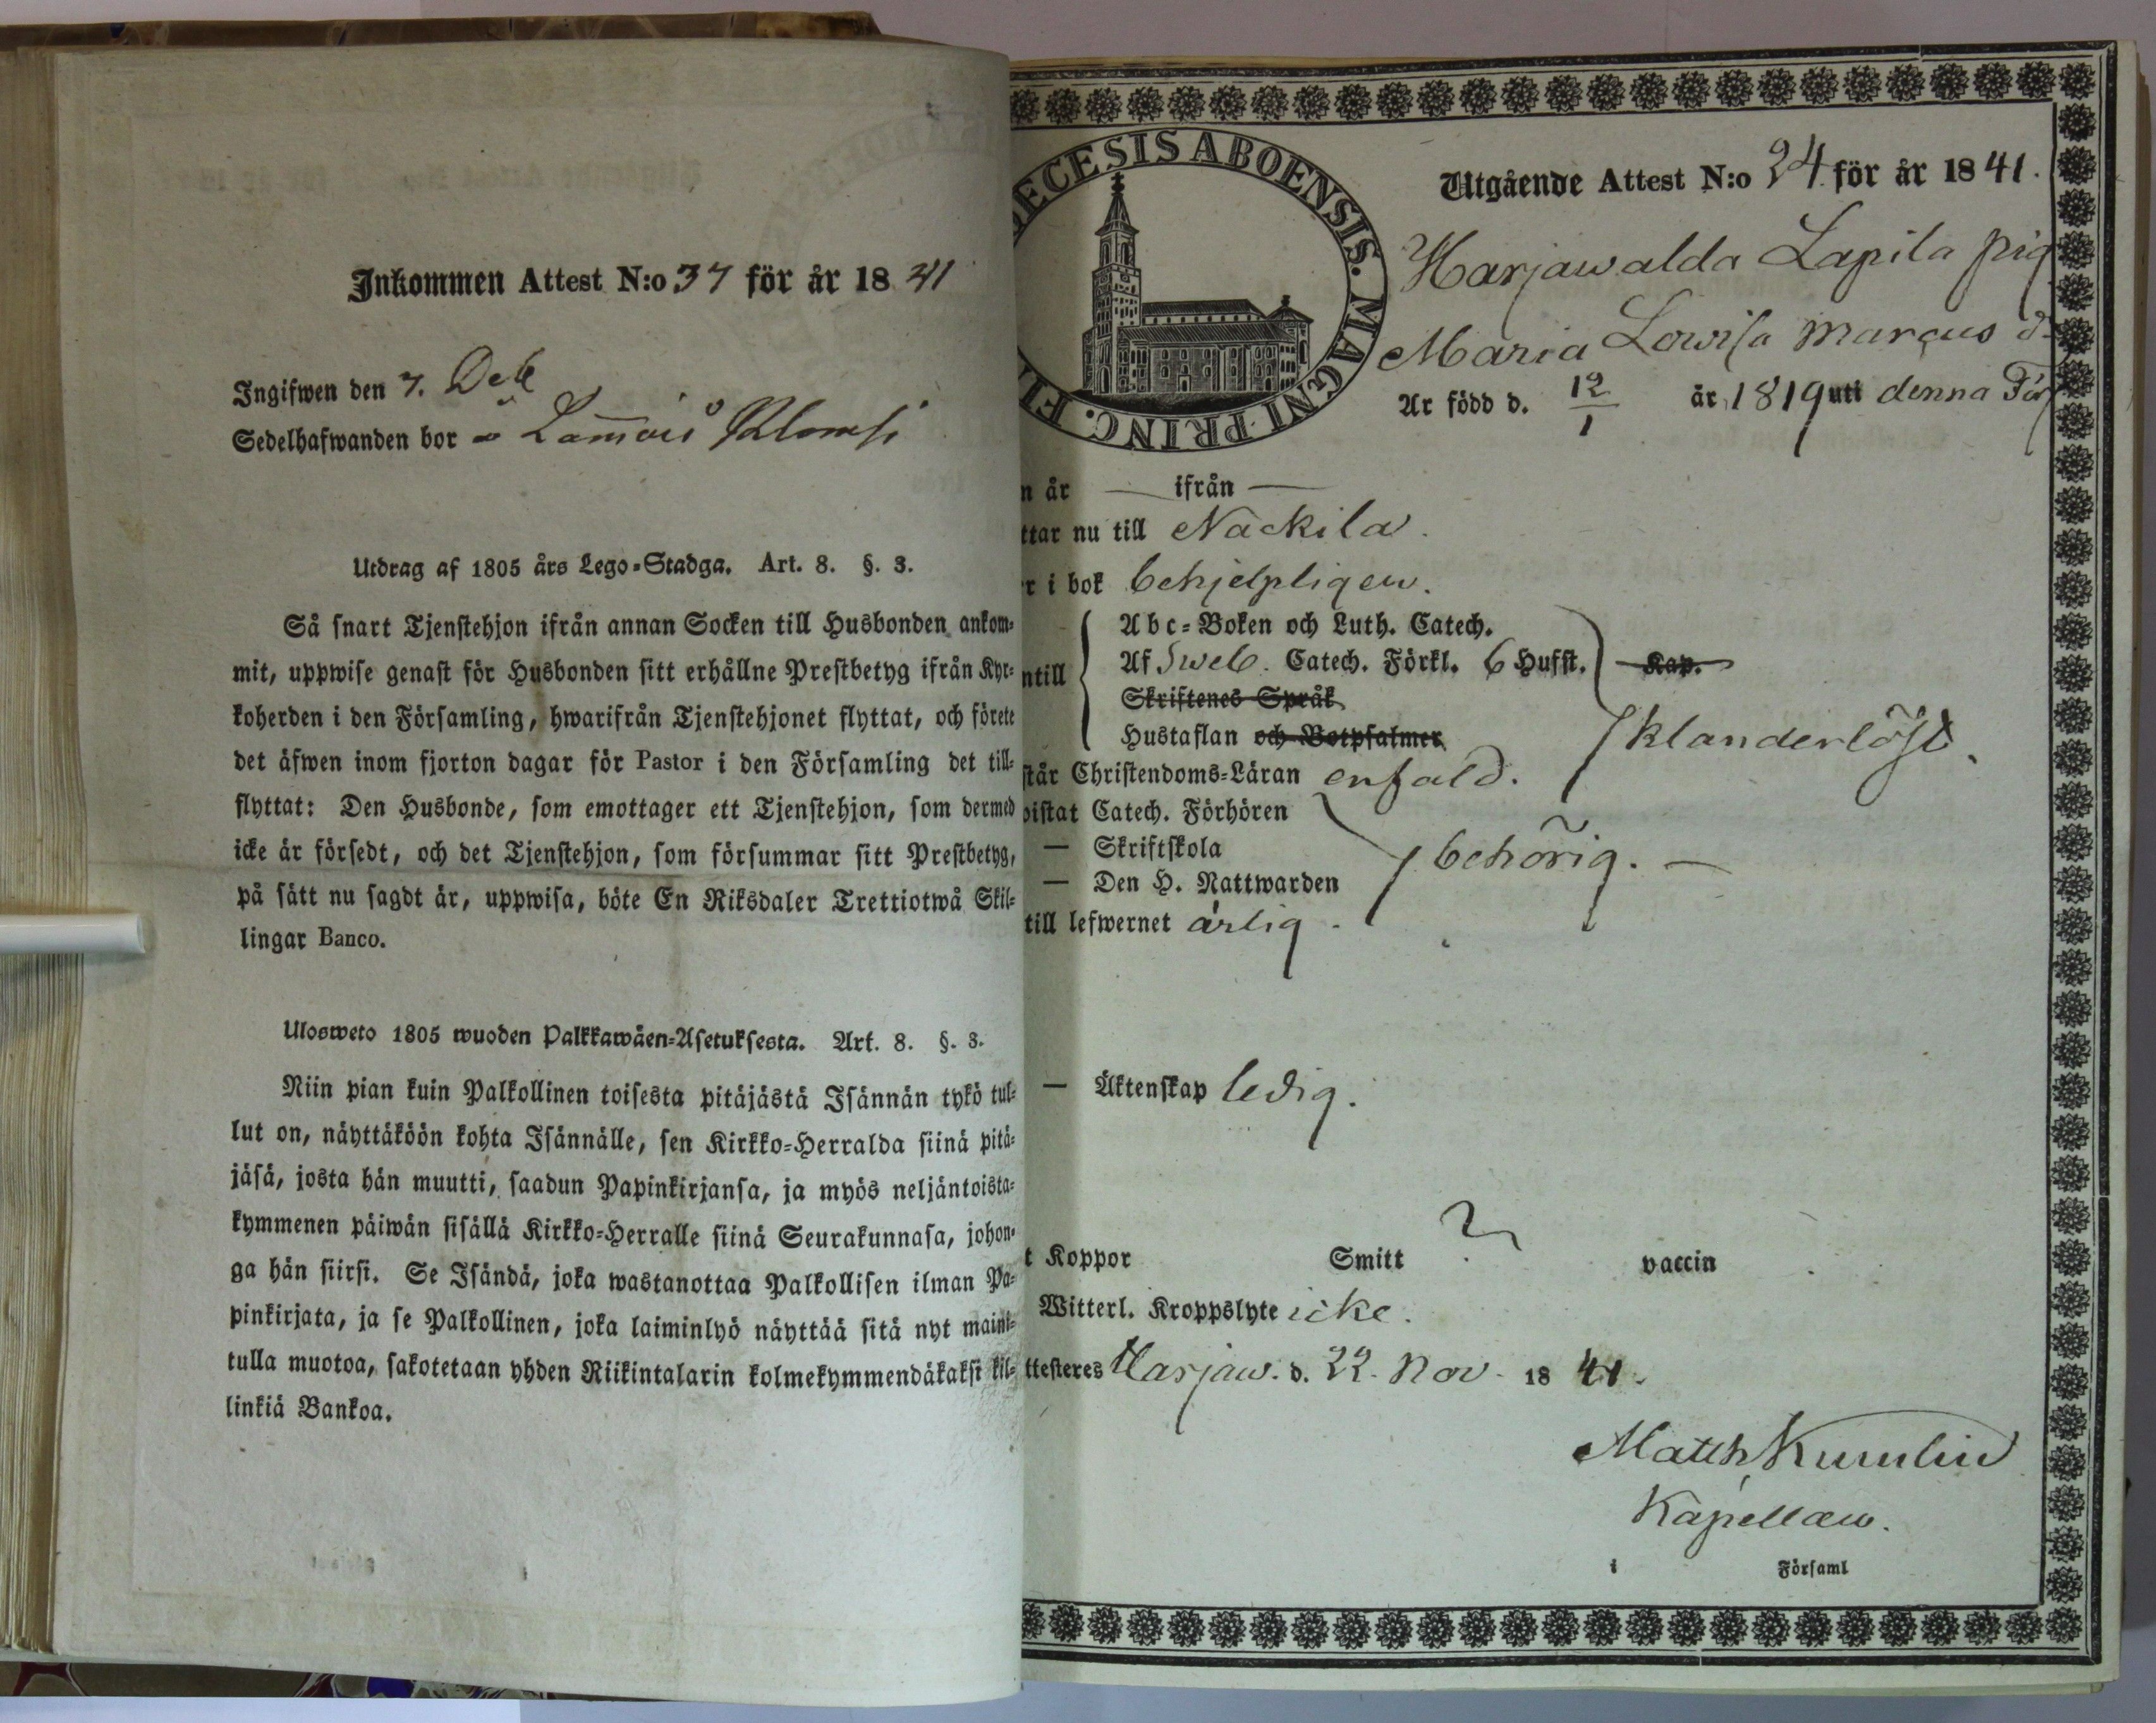 Inkommen Attest N:o 37 för år 18 41
Ingifwen den 7. Deb
Sedelhafwanden bor
Utdrag af 1805 års Lego-Stadga. Art. 8. §. 3.
Så snart Tjenstehjon ifrån annan Socken till Husbonden ankom-
mit, uppwise genast för Husbonden sitt erhållne Prestbetyg ifrån Kyr-
koherden i den Församling, hwarifrån Tjenstehjonet flyttat, och förete
det äfwen inom fjorton dagar för Pastor i den Församling det till-
flyttat: Den Husbonde, som emottager ett Tjenstehjon, som dermed
icke är försedt, och det Tjenstehjon, som försummar sitt Prestbetyg,
på sätt nu sagdt är, uppwisa, böte En Riksdaler Trettiotwå Skil-
lingar Banco.
Ulosweto 1805 wuoden Palkkawäen-Asetuksesta. Art. 8. §. 3.
Niin pian kuin Palkollinen toisesta pitäjästä Isännän tykö tul-
lut on, näyttäköön kohta Isännälle, sen Kirkko-Herralda siinä pitä-
jäsä, josta hän muutti, saadun Papinkirjansa, ja myös neljäntoista-
kymmenen päiwän sisällä Kirkko-Herralle siinä Seurakunnasa, johon-
ga hän siirsi. Se Isändä, joka wastanottaa Palkollisen ilman Pa-
pinkirjata, ja se Palkollinen, joka laiminlyö näyttää sitä nyt maini-
tulla muotoa, sakotetaan yhden Riikintalarin kolmekymmendäkaksi kil-
linkiä Bankoa.
ECESIS ABOENSIS. MAGNI PRINC. FI
Utgående Attest N:o 24 för år 18 41.
Harjawalda Lapila pig
Maria Lowisa Marcus d.
Är född d. 12/1 år 1819 uti dennaFör
n år — ifrån —
ttar nu till Nackila.
r i bok behjelpligen.
Abc-Boken och Luth. Catech.
ntill Af Sweb. Catech. Förkl. 6 Hufst. Kap.
Skriftenes Språk
Hustaflan och Botpsalmer klanderlöst.
står Christendoms-Läran enfald.
istat Catech. Förhören
— Skriftskola behörig. —
— Den H. Nattwarden
till lefwernet ärlig.
— Äktenskap ledig.
t Koppor Smitt ? vaccin
Witterl. Kroppslyte icke.
ttesteres Harjaw. d. 22. Nov. 18 41.
Matth Kumlin
Kapellan.
i Församl